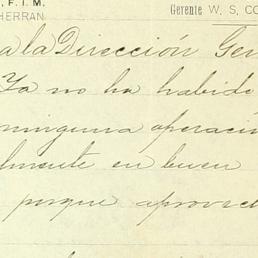 , F. I. M.
HERRAN
Gerente W. S, CO
a la Dirección Gen
Ya no ha habido
ninguna operació
lmente en buen
porque aprovec